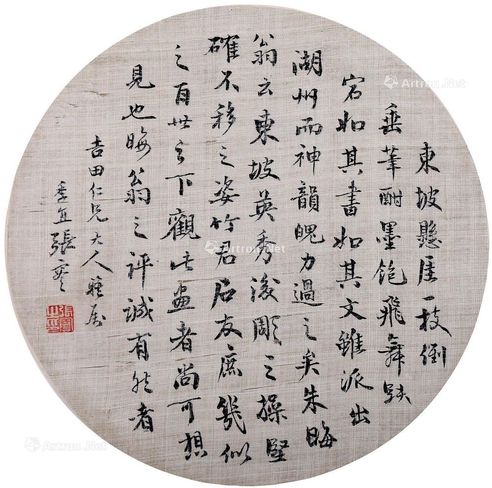 東坡懸崖一枝倒
垂筆酣墨飽飛舞跌
宕如其書如其文雖派出
湖州而神韻魄力過之矣朱晦
翁云東坡英秀後彫之操堅
確不移之姿竹君石友庶幾似
之百世之下觀此畫者尚可想
見也晦翁之評誠有然者
吉田仁兄大人雅屬
季直張謇
Artron.Net